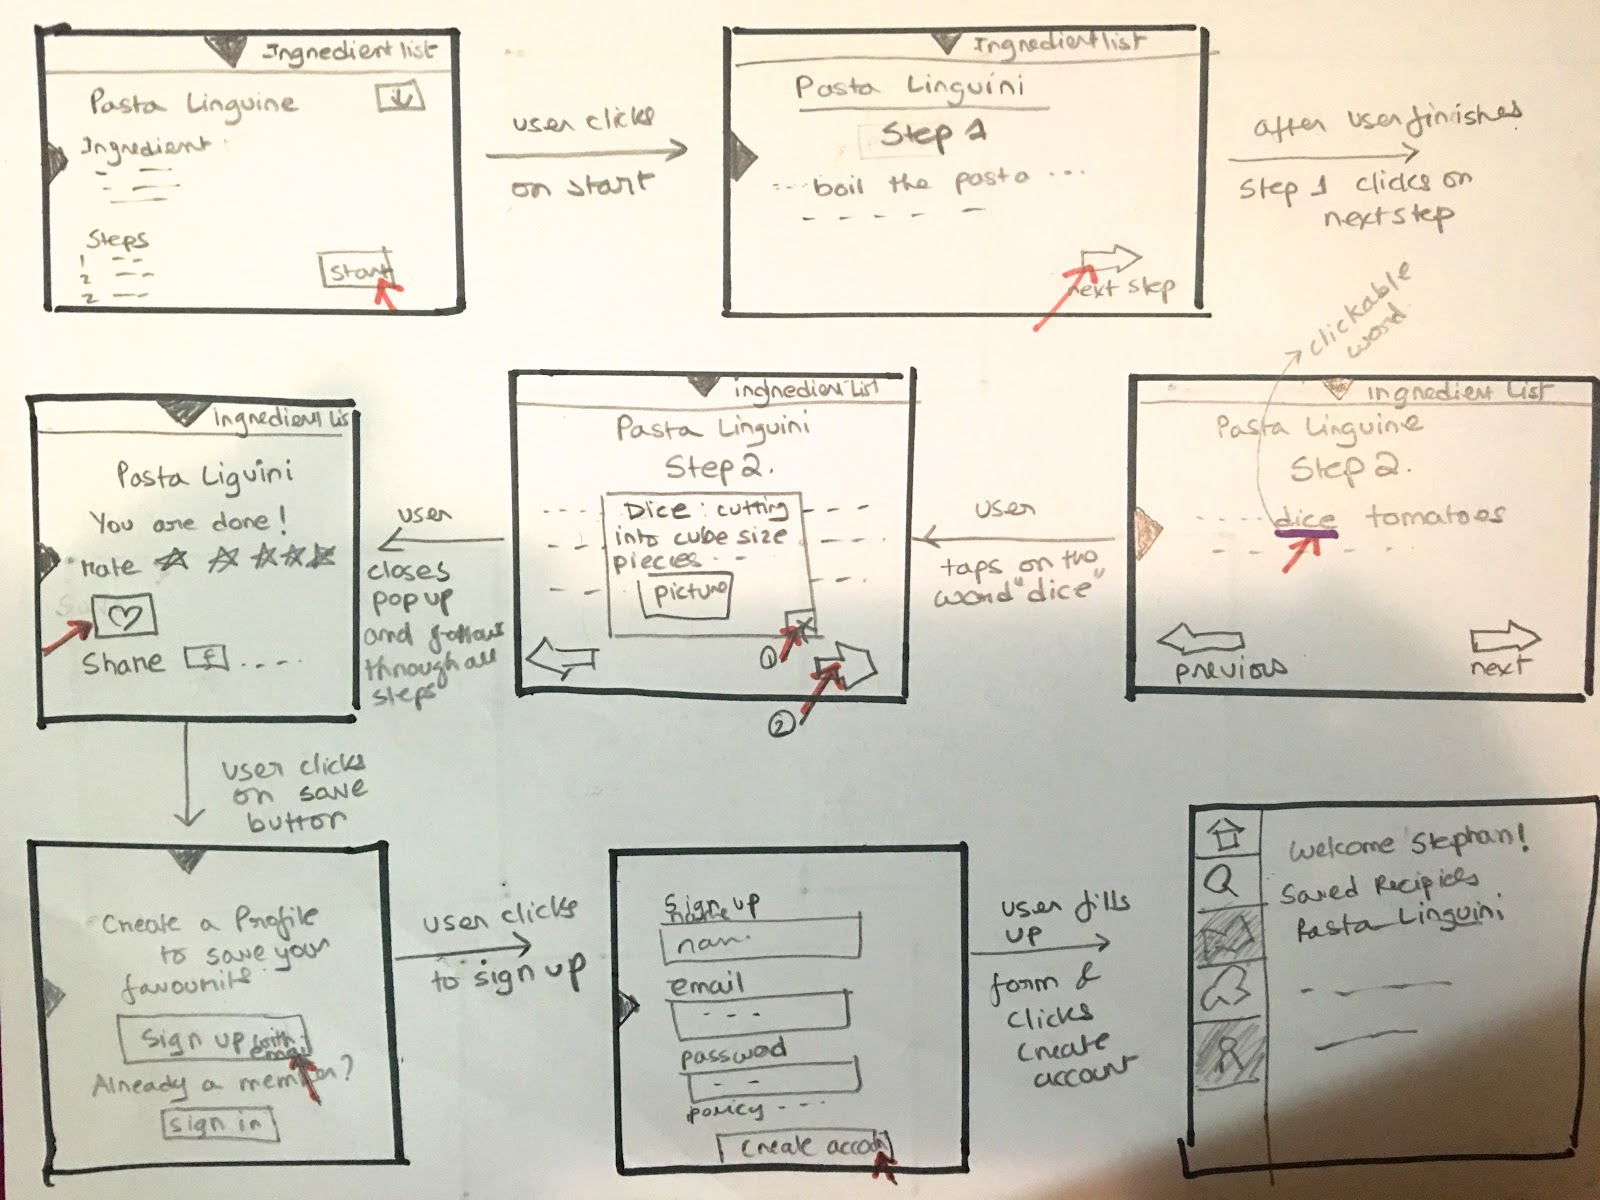 Ingnedient list
Pasta Linguine
Ingnedient
Steps
1
2
2
Start
user clicks
on start
Ingnedient list
Pasta Linguini
Step 1
boil the pasta ...
next step
after user finishes
Step 1 clicks on
next step
clickable
word
ingnedient List
Pasta Linguine
Step 2.
dice tomatoes
previous
next
user
taps on the
word "dice"
ingnedient List
Pasta Linguini
Step 2.
Dice : cutting
into cube size
pieces - -
picture
X
1
2
user
closes
pop up
and follows
through all
steps
ingnedient Lis
Pasta Liguini
You are done!
rate
Share f ....
user clicks
on save
button
Create a Profile
to save your
favourite
Sign up with
email
Already a member?
sign in
user clicks
to sign up
Sign up
name
nam.
email
- - -
password
- -
policy - - -
Create account
user fills
up
form &
clicks
create
account
Welcome Stephan!
Saved Recipies
Pasta Linguini